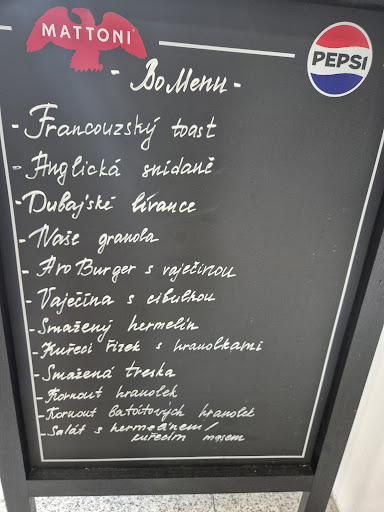 MATTONI
PEPSI
- Bo Menu -
- Francouzský toast
- Anglická snídaně
- Dubajské lívance
- Naše granola
- Avo Burger s vaječinou
- Vaječina s cibulkou
- Smažený hermelín
- Kuřecí řízek s hranolkami
- Smažená treska
- Kornout hranolek
- Kornout batátových hranolek
- Salát s hermelínem/
kuřecím masem